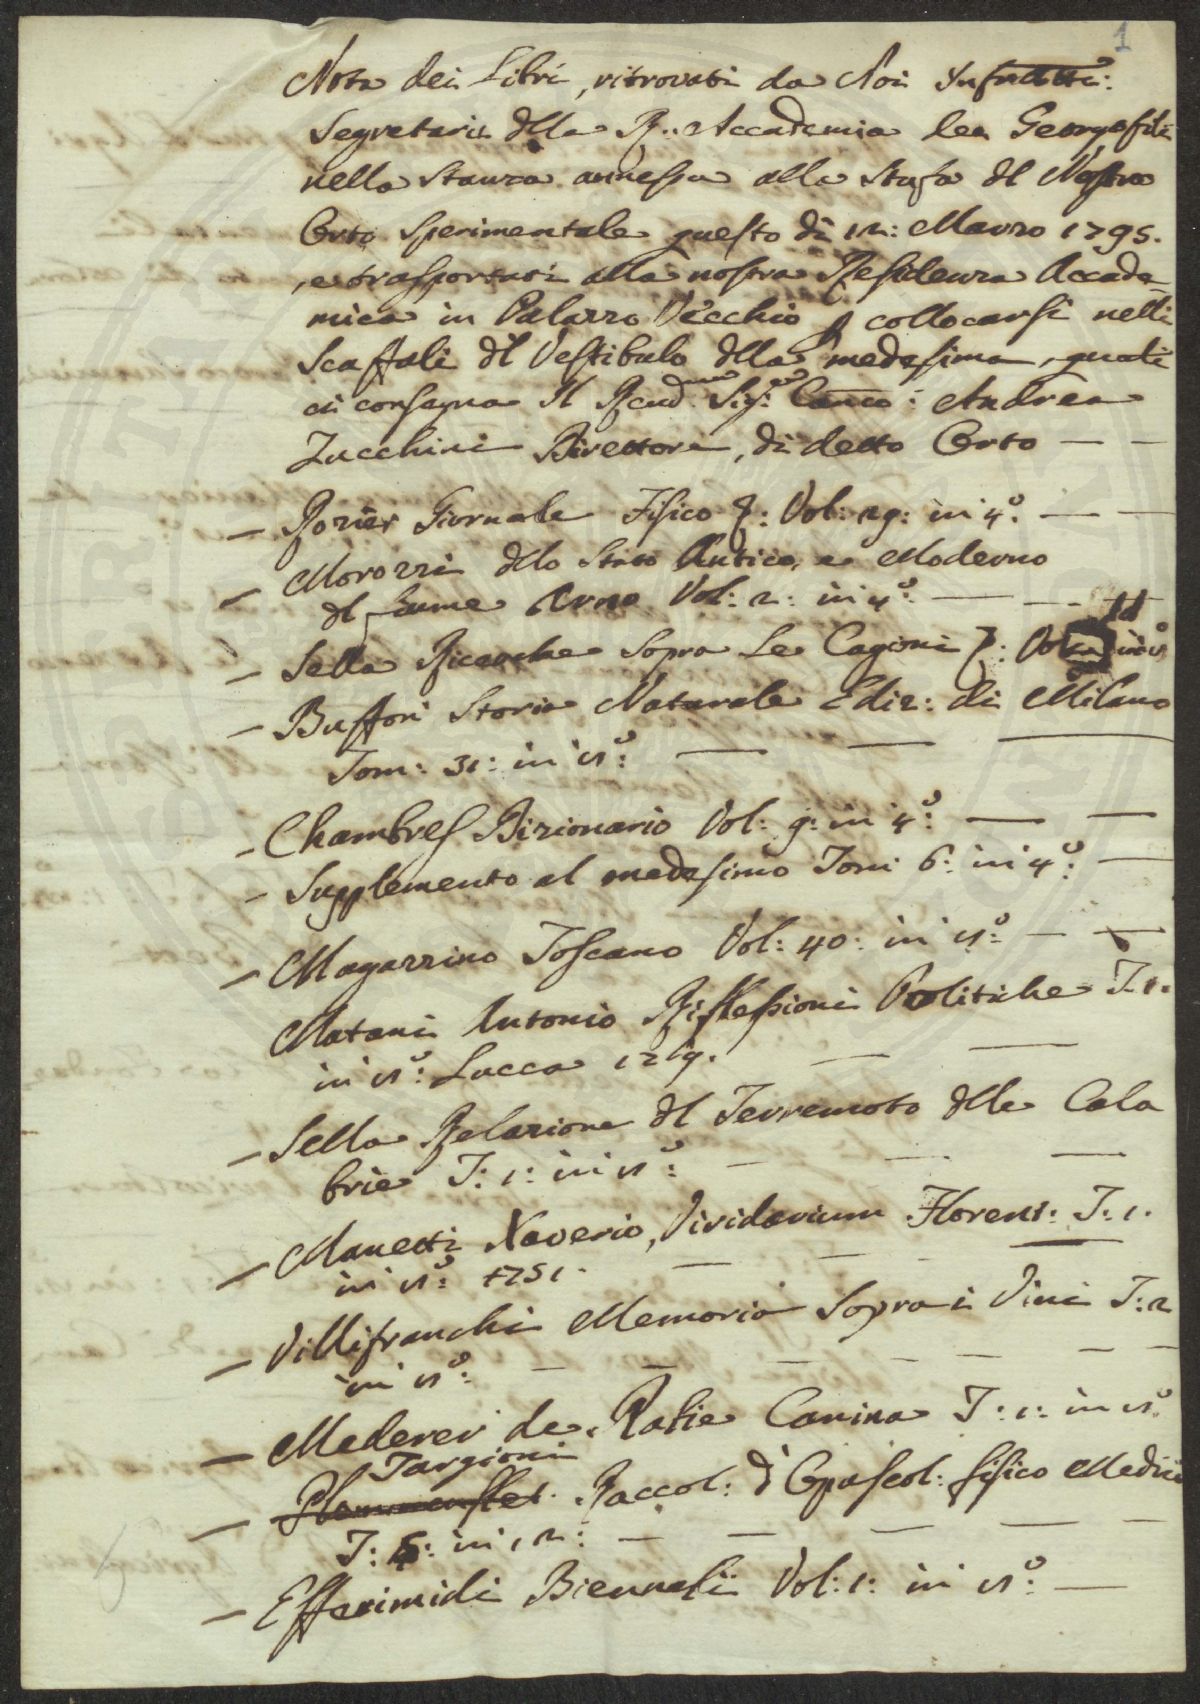 1
Nota dei Libri, ritrovati da Noi Infratti:
Segretario dlla R.: Accademia lei Georgofili
nella stanza annessa alla Stufa dl Nostro
Orto Sperimentale questo dì 12: Marzo 1795.
, e trasportati alla nostra Residenza Accade-
mica in Palazzo Vecchio p collocarsi nelli
Scaffali dl Vestibulo dlla medesima, quali
ci consegna Il Revd. Sig: Canco: Andrea
Zucchini Direttore, di detto Orto — —
— Rozier Giornale Fisico &: Vol: 29: in 4.° — —
— Morozzi dllo Stato Antico, e Moderno
dl fiume Arno Vol: 2: in 4.° — — —
— Sella Ricerche Sopra Le Cagioni &: Vol in 8°
— Buffon Storia Naturale Ediz: di Milano
Tom: 31: in 8°: — — —
- Chambres Dizionario Vol: 9: in 4°: — —
- Supplemento al medesimo Tomi 6: in 4°: —
— Magazzino Toscano Vol: 40: in 8°: — —
Matani Antonio Riflessioni Politiche T. 1.
in 8°: Lucca 1769. — —
— Sella Relazione dl Terremoto dlle Cala
brie T: 1: in 8°: — — —
— Manetti Xaverio, Viridarium Florent: T: 1.
in 8°: 1751. — — —
— Villifranchi Memoria Sopra i Vini T: 2
in 8°: — — — — — — —
— Mederer de Rabie Canina T: 1: in 8°.
Targioni
— Raccol: d'Opuscol: fisico Medici
T: in 12: — — — — —
— Efferimidi Biennali Vol: 1: in 8°: —